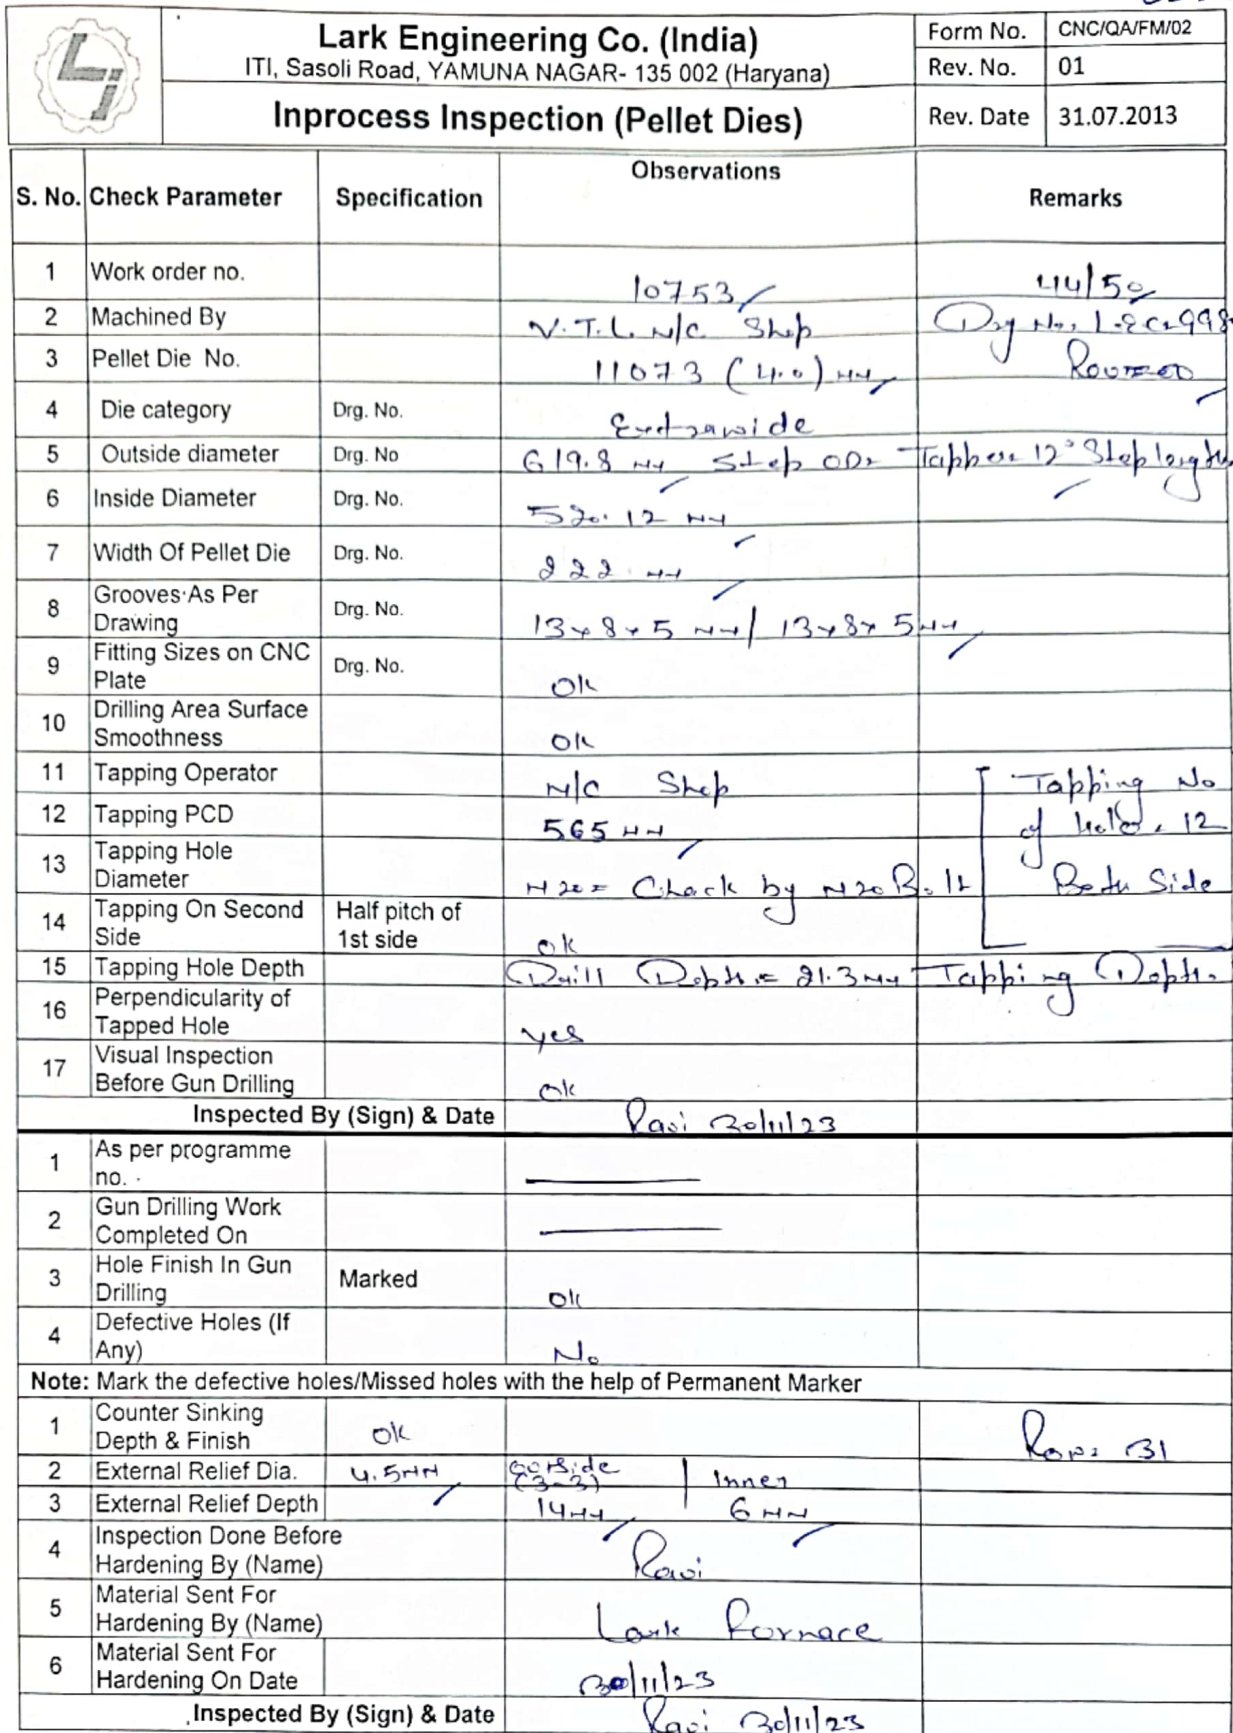 Lark Engineering Co. (India)
ITI, Sasoli Road, YAMUNA NAGAR- 135 002 (Haryana)
Inprocess Inspection (Pellet Dies)
Form No. CNC/QA/FM/02
Rev. No. 01
Rev. Date 31.07.2013
S. No. Check Parameter Specification Observations Remarks
1 Work order no. 10753 44/50
2 Machined By V.T.L M/C Shop Drg No. 998
3 Pellet Die No. 11073 (4.0) MM
4 Die category Drg. No. Extrawide
5 Outside diameter Drg. No 619.8 MM Step OD= Tapper 12° Step length
6 Inside Diameter Drg. No. 520.12 MM
7 Width Of Pellet Die Drg. No. 222 MM
8 Grooves As Per Drawing Drg. No. 13x8x5 MM / 13x8x5 MM
9 Fitting Sizes on CNC Plate Drg. No. Ok
10 Drilling Area Surface Smoothness Ok
11 Tapping Operator M/C Shop Tapping No
12 Tapping PCD 565 MM of hole = 12
13 Tapping Hole Diameter M20= Check by M20 Bolt Both Side
14 Tapping On Second Side Half pitch of 1st side Ok
15 Tapping Hole Depth Drill Depth = 21.3 MM Tapping Depth=
16 Perpendicularity of Tapped Hole yes
17 Visual Inspection Before Gun Drilling Ok
Inspected By (Sign) & Date Ravi 30/11/23
1 As per programme no.
2 Gun Drilling Work Completed On
3 Hole Finish In Gun Drilling Marked Ok
4 Defective Holes (If Any) No
Note: Mark the defective holes/Missed holes with the help of Permanent Marker
1 Counter Sinking Depth & Finish Ok 31
2 External Relief Dia. 4.5MM Outside (3-3) | Inner
3 External Relief Depth 14MM 6MM
4 Inspection Done Before Hardening By (Name) Ravi
5 Material Sent For Hardening By (Name) Lark Fornace
6 Material Sent For Hardening On Date 30/11/23
Inspected By (Sign) & Date Ravi 30/11/23